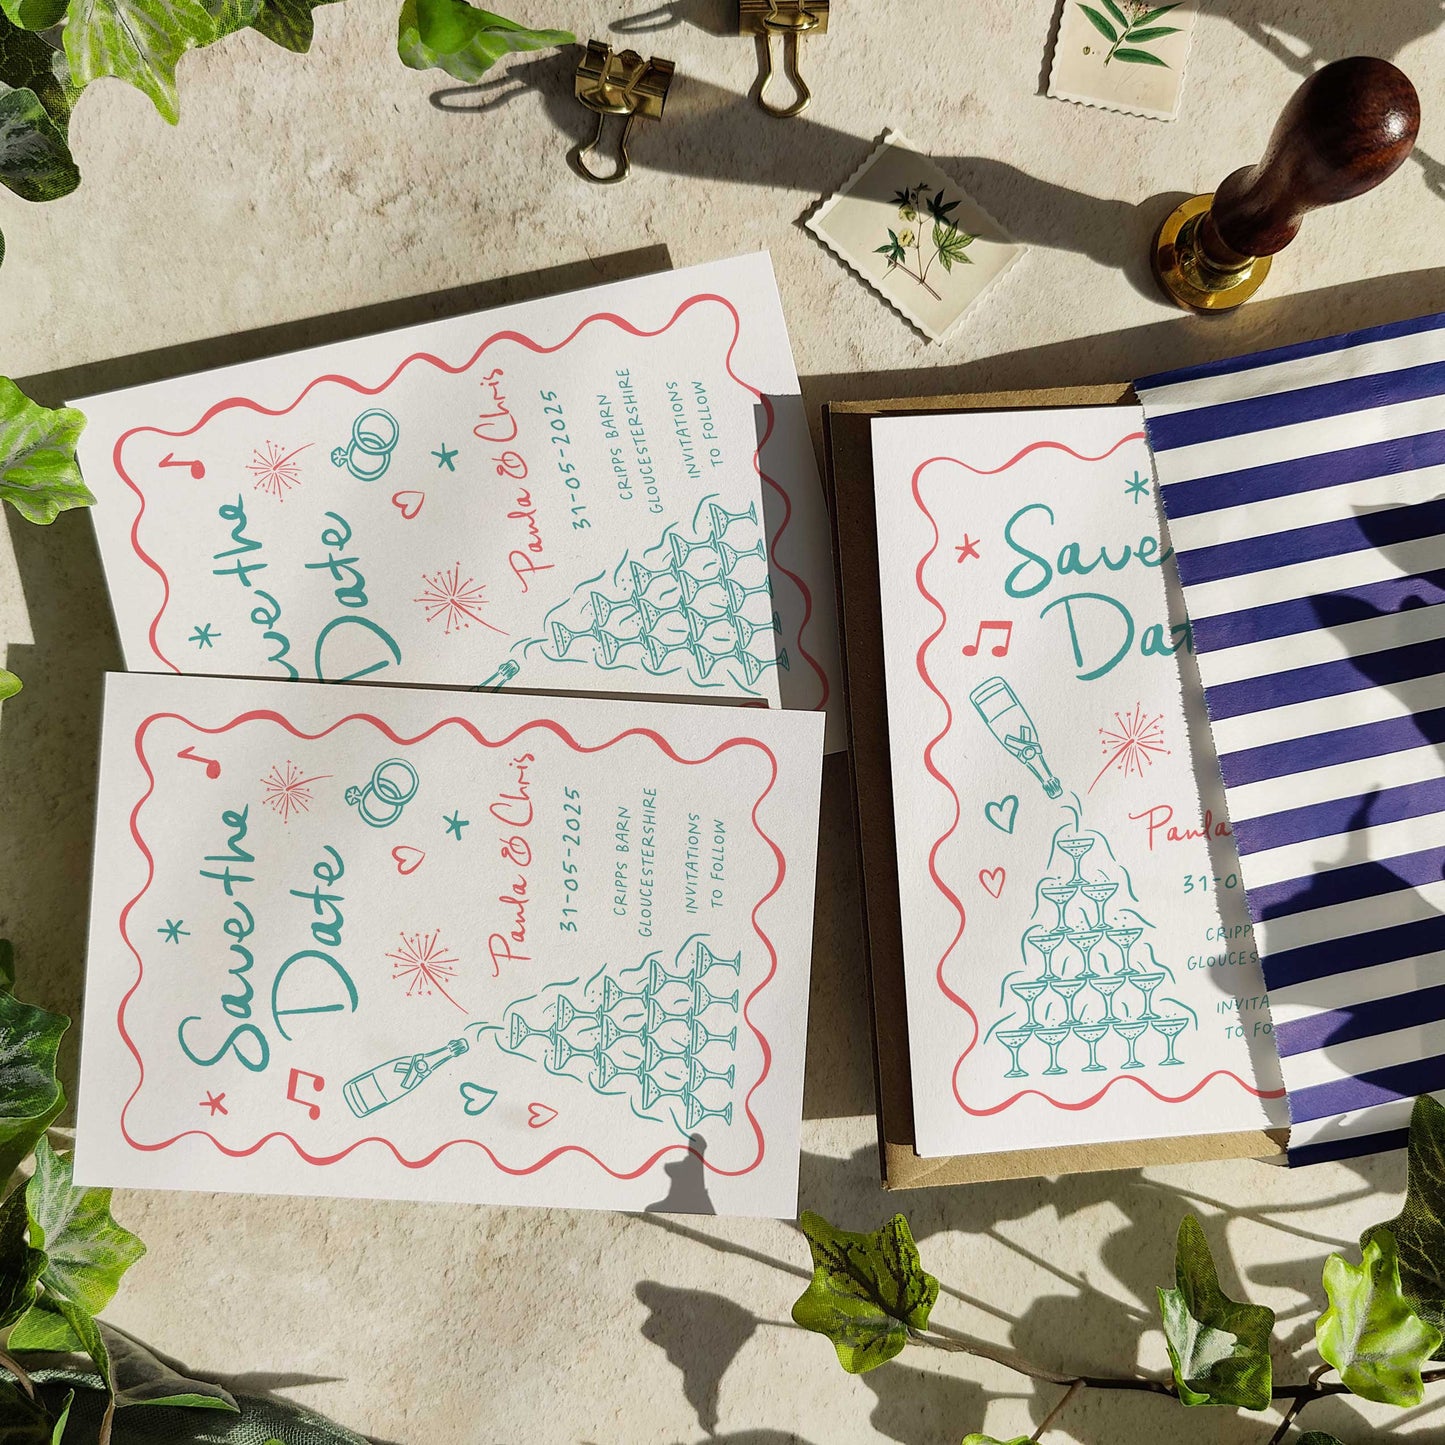 Save the
Date
Paula & Chris
31-05-2025
CRIPPS BARN
GLOUCESTERSHIRE
INVITATIONS
TO FOLLOW
Save the
Date
Paula & Chris
31-05-2025
CRIPPS BARN
GLOUCESTERSHIRE
INVITATIONS
TO FOLLOW
Save
Dat
Paula
31-0
CRIPP
GLOUCES
INVITA
TO FO